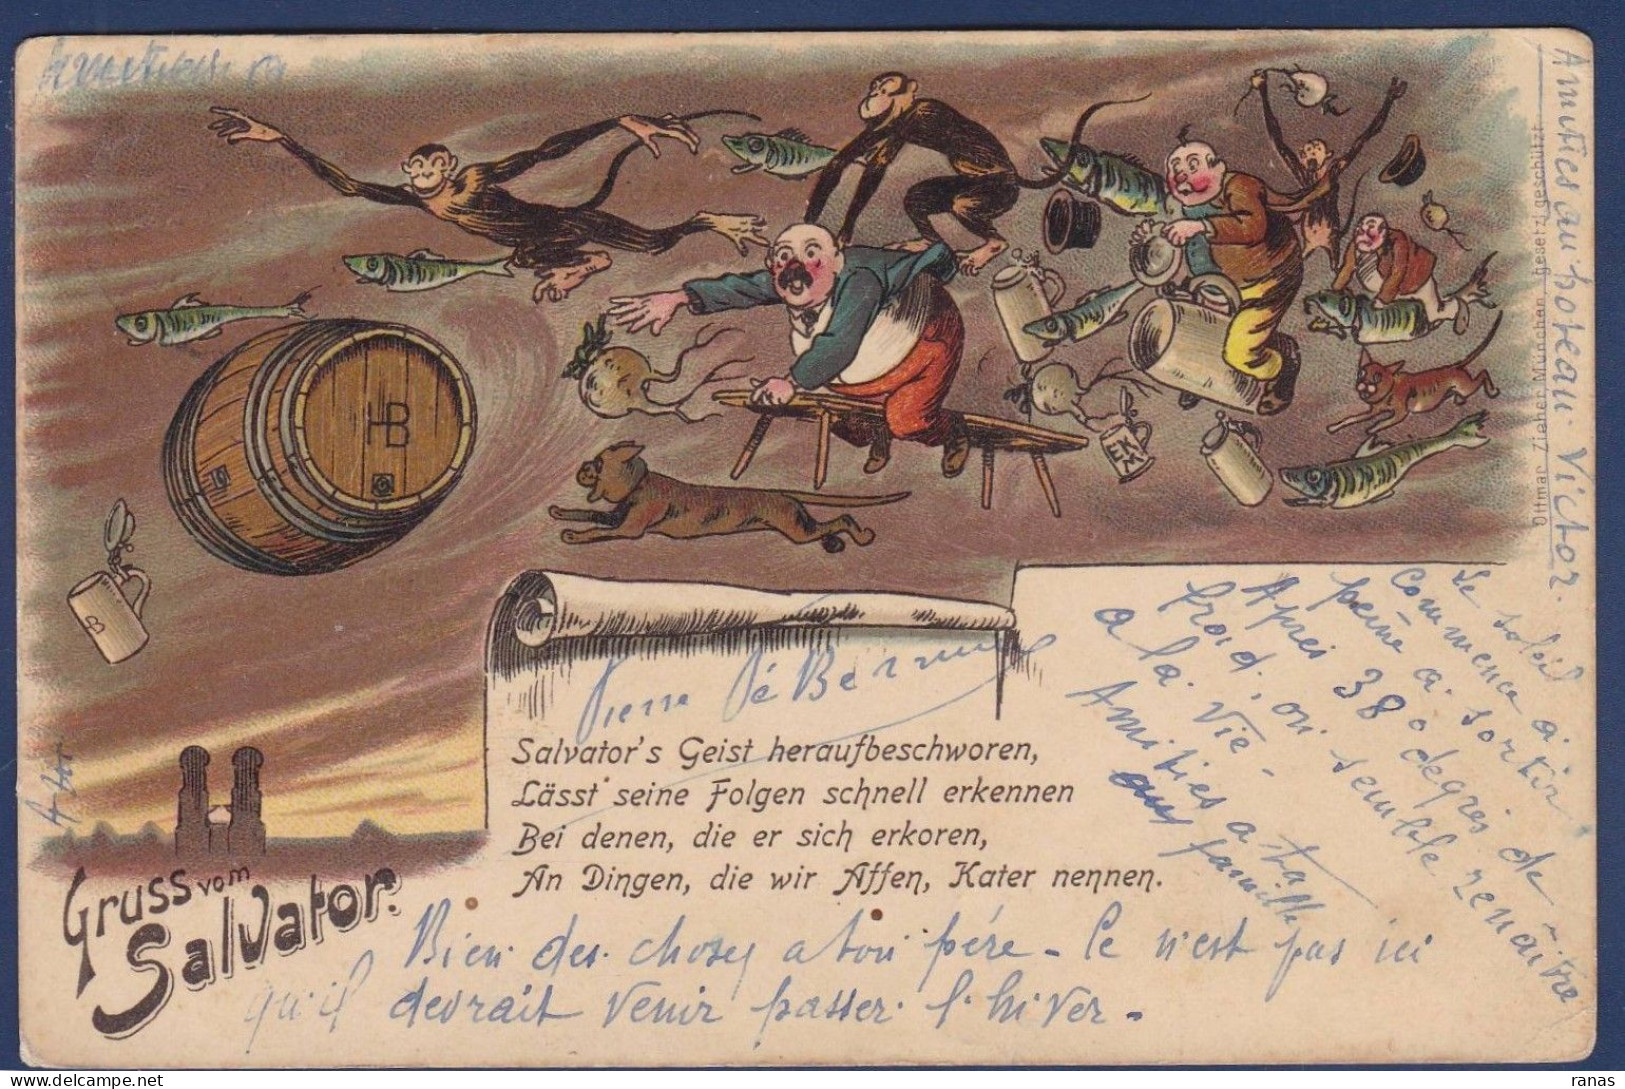 HB
B
EKM
Ottmar Zieher, München. gesetzl. geschützt.
Amitiés au poteau Victor.
Gruss vom
Salvator.
Salvator's Geist heraufbeschworen,
Lässt seine Folgen schnell erkennen
Bei denen, die er sich erkoren,
An Dingen, die wir Affen, Kater nennen.
Le soleil
Commence à
peine à sortir
Après 38° degrés de
froid, on semble renaître
à la vie -
Amitiés a ta
aux famille
Bien des choses a ton père - Ce n'est pas ici
qu'il devrait venir passer l'hiver -
ranas